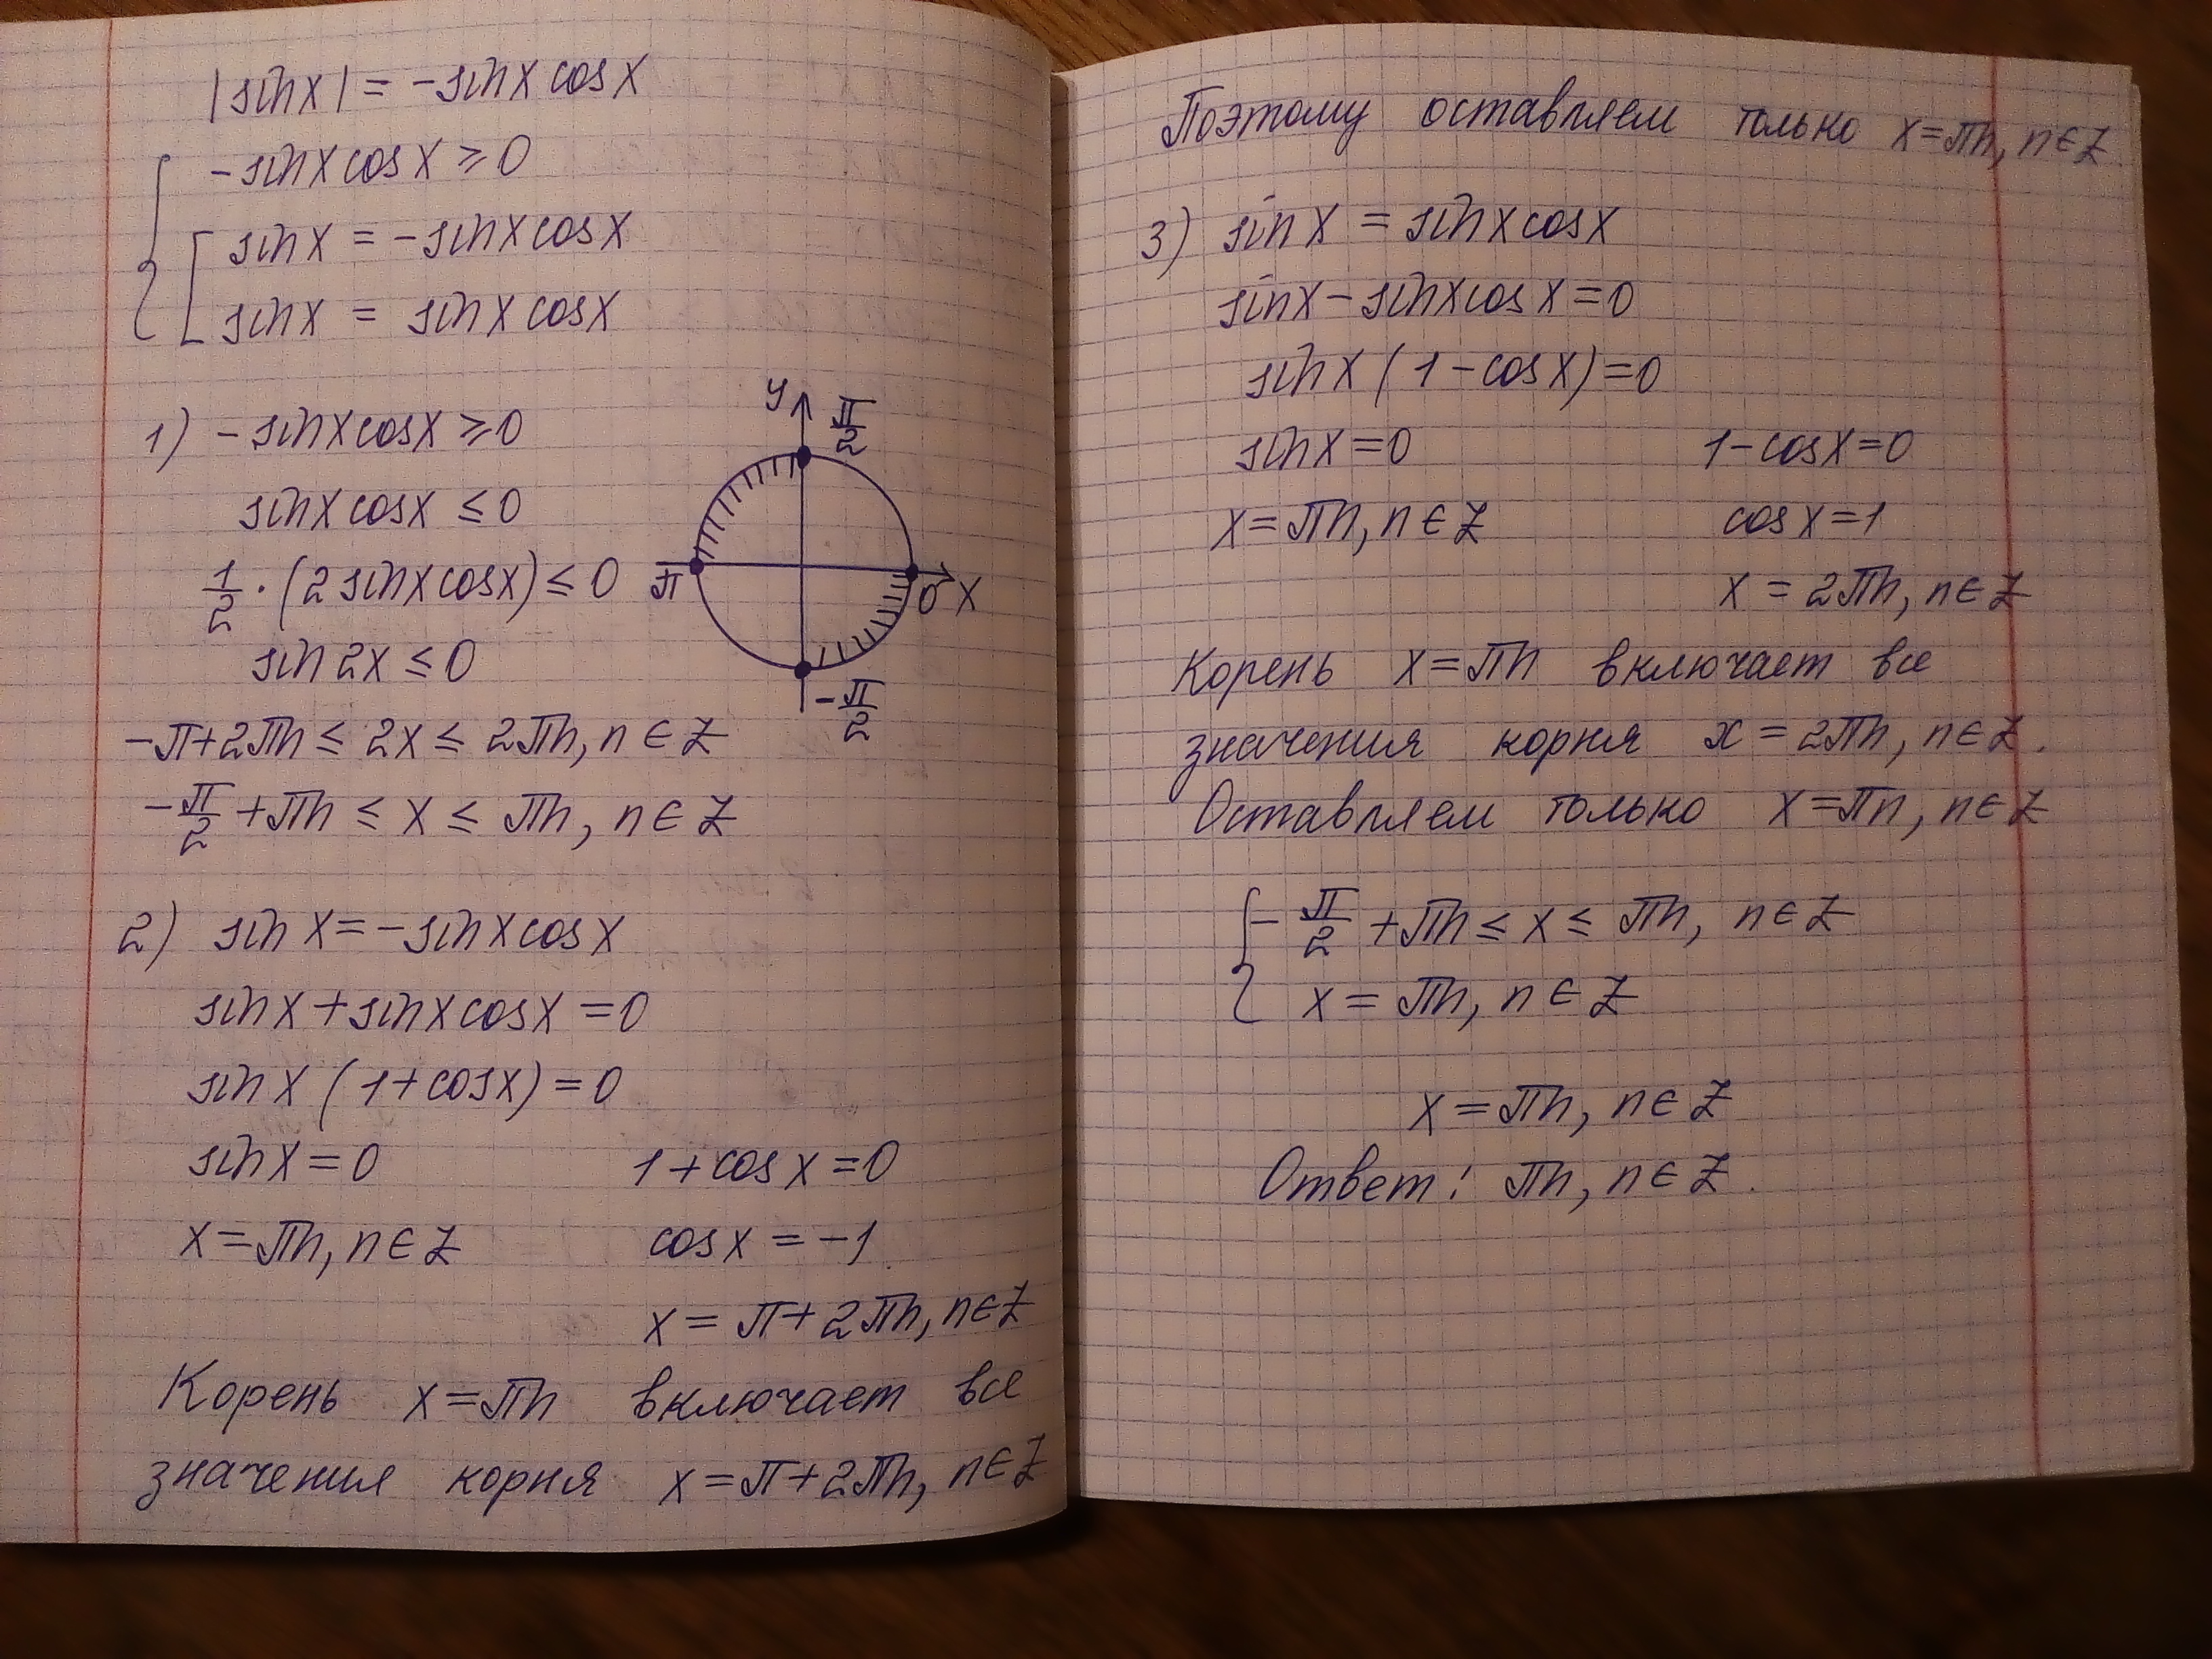 |sinx| = -sinx cosx
-sinx cosx ≥ 0
sinx = -sinx cosx
sinx = sinx cosx
1) -sinx cosx ≥ 0
sinx cosx ≤ 0
1/2 · (2 sinx cosx) ≤ 0
sin 2x ≤ 0
-π+2πn ≤ 2x ≤ 2πn, n ∈ Z
-π/2 + πn ≤ x ≤ πn, n ∈ Z
y
π/2
π
0 x
-π/2
2) sin x = -sinx cosx
sinx + sinx cosx = 0
sinx (1+cosx) = 0
sinx = 0 1+cosx = 0
x = πn, n ∈ Z cosx = -1
x = π+2πn, n ∈ Z
Корень x = πn включает все
значения корня x = π+2πn, n ∈ Z
Поэтому оставляем только x = πn, n ∈ Z.
3) sin x = sinx cosx
sinx - sinx cosx = 0
sinx (1-cosx) = 0
sinx = 0 1-cosx = 0
x = πn, n ∈ Z cosx = 1
x = 2πn, n ∈ Z
Корень x = πn включает все
значения корня x = 2πn, n ∈ Z.
Оставляем только x = πn, n ∈ Z
-π/2 + πn ≤ x ≤ πn, n ∈ Z
x = πn, n ∈ Z
x = πn, n ∈ Z
Ответ: πn, n ∈ Z.